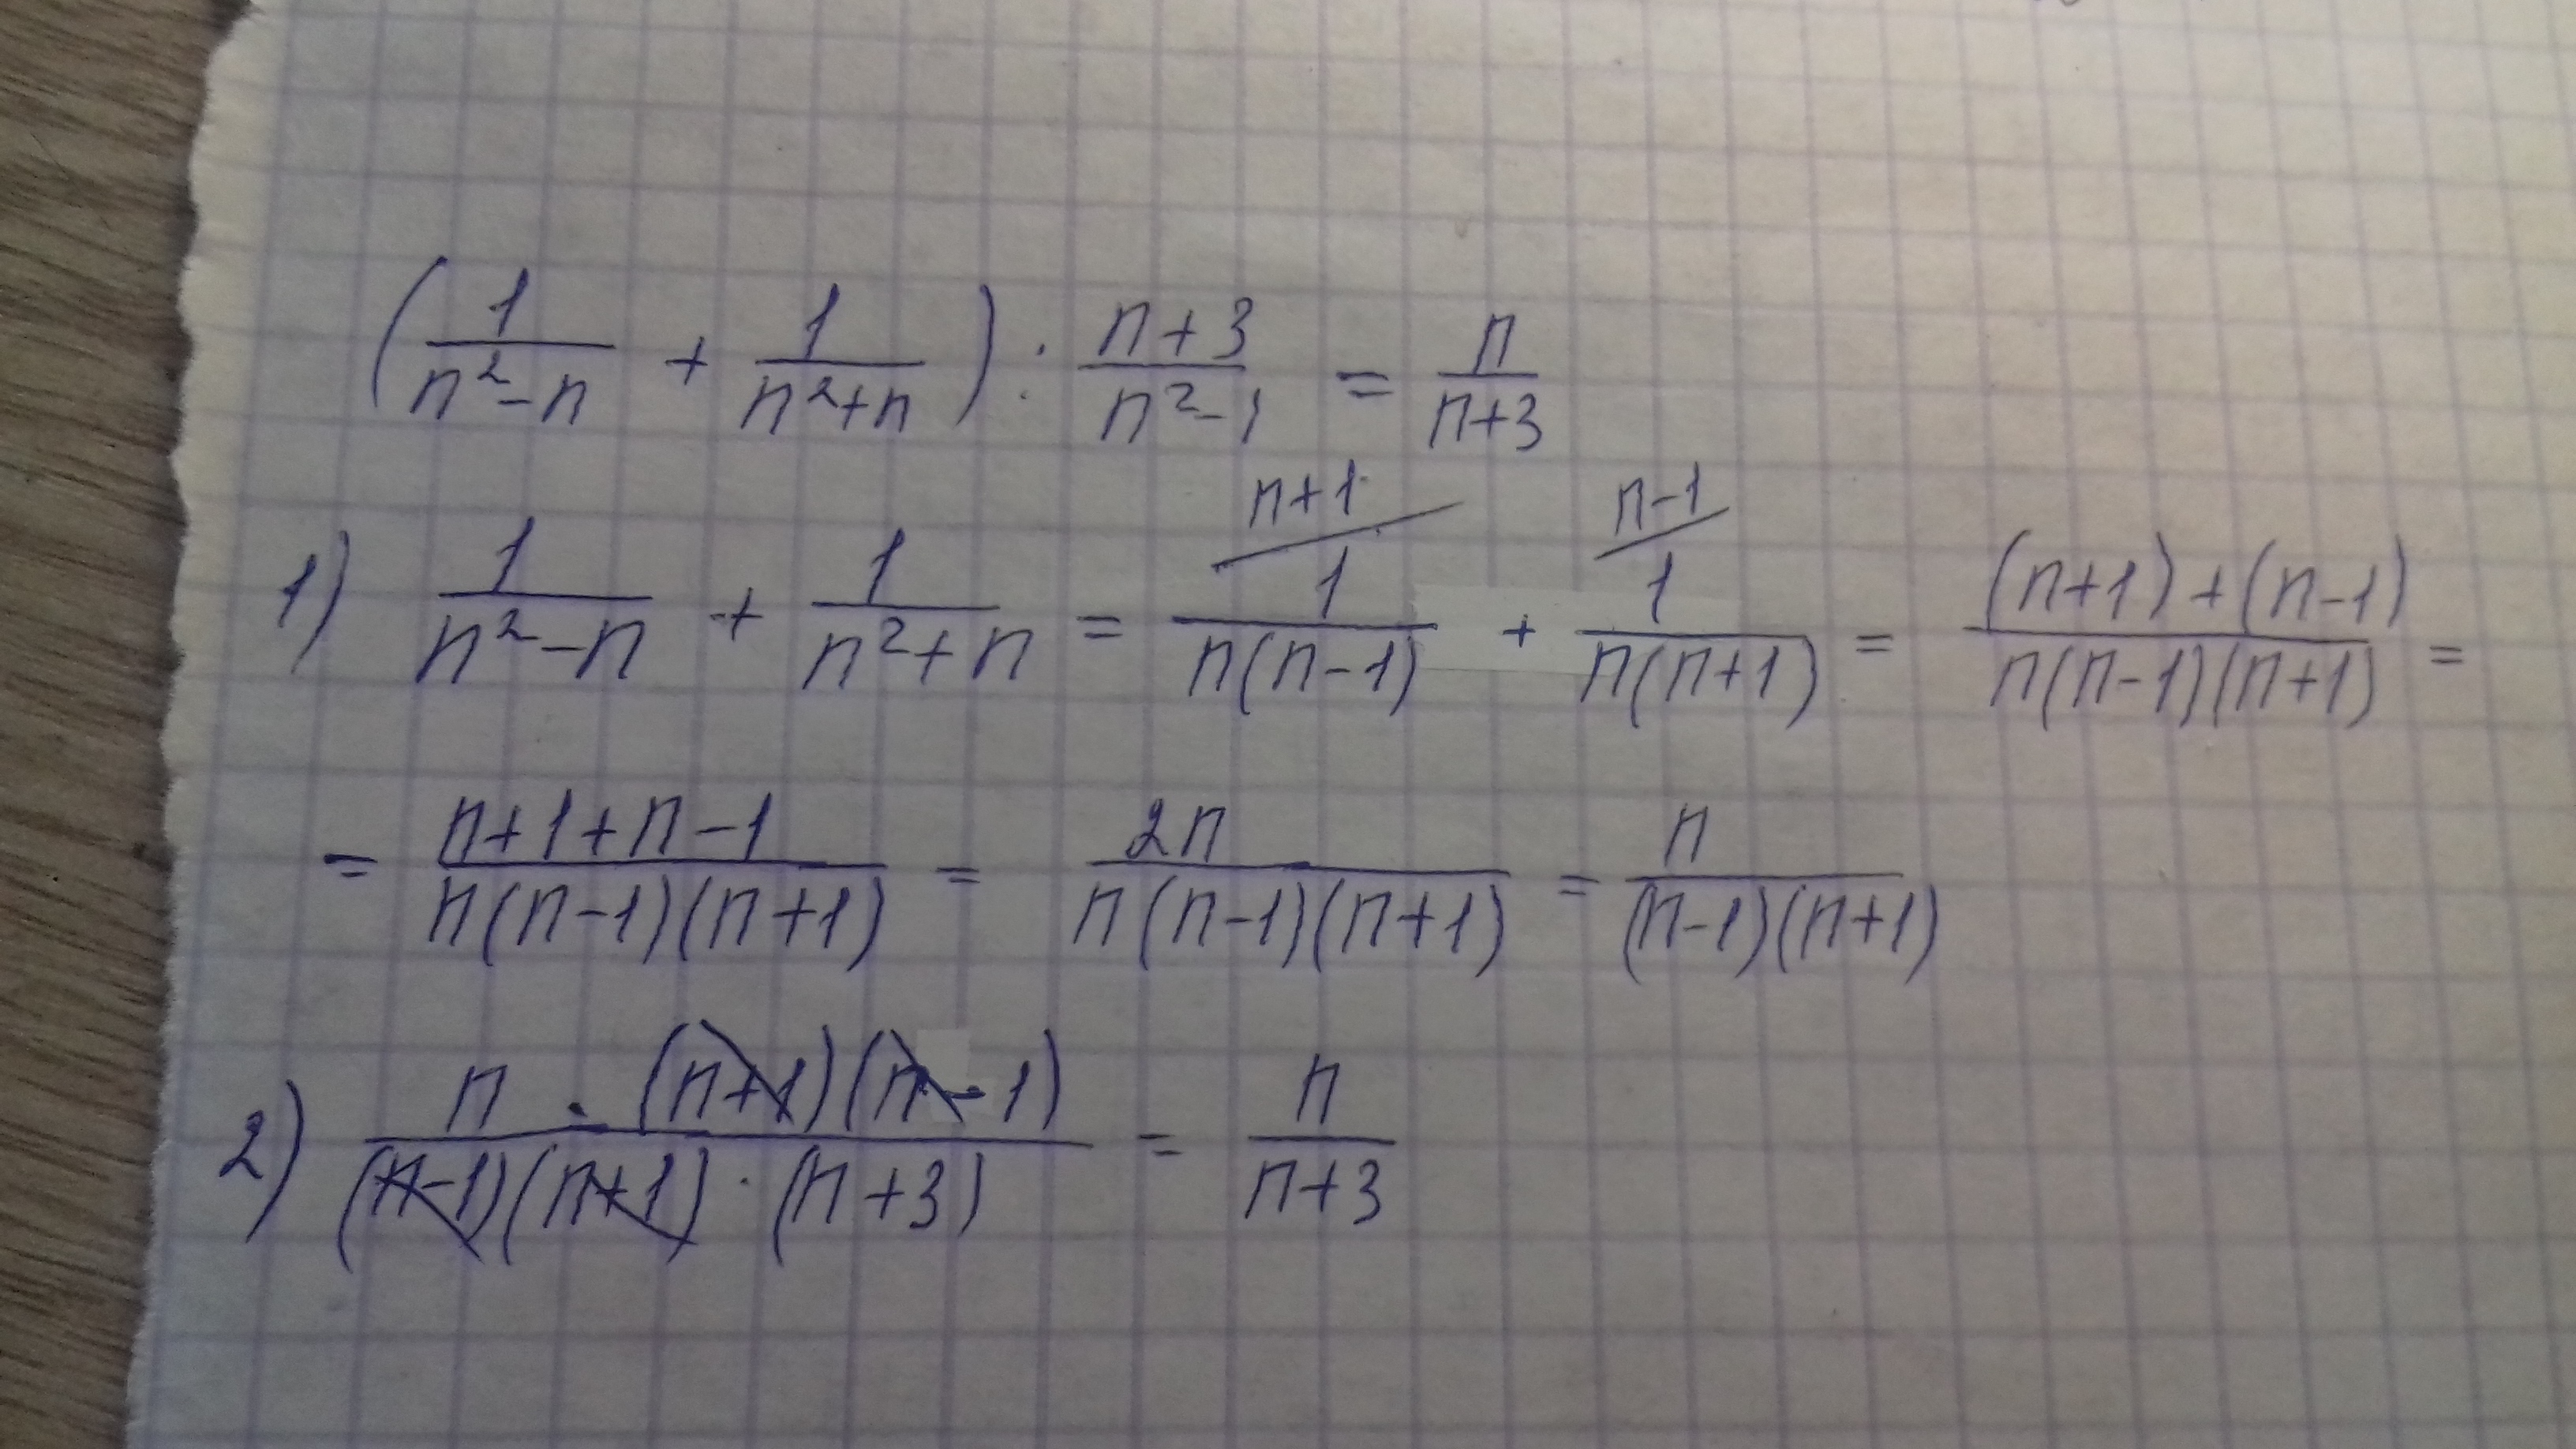 (1/(n²-n) + 1/(n²+n)) : (n+3)/(n²-1) = n/(n+3)
1) 1/(n²-n) + 1/(n²+n) = n+1/ 1/(n(n-1)) + n-1/ 1/(n(n+1)) = ((n+1)+(n-1))/(n(n-1)(n+1)) =
= (n+1+n-1)/(n(n-1)(n+1)) = 2n/(n(n-1)(n+1)) = n/((n-1)(n+1))
2) (n · (n+1)(n-1))/((n-1)(n+1) · (n+3)) = n/(n+3)